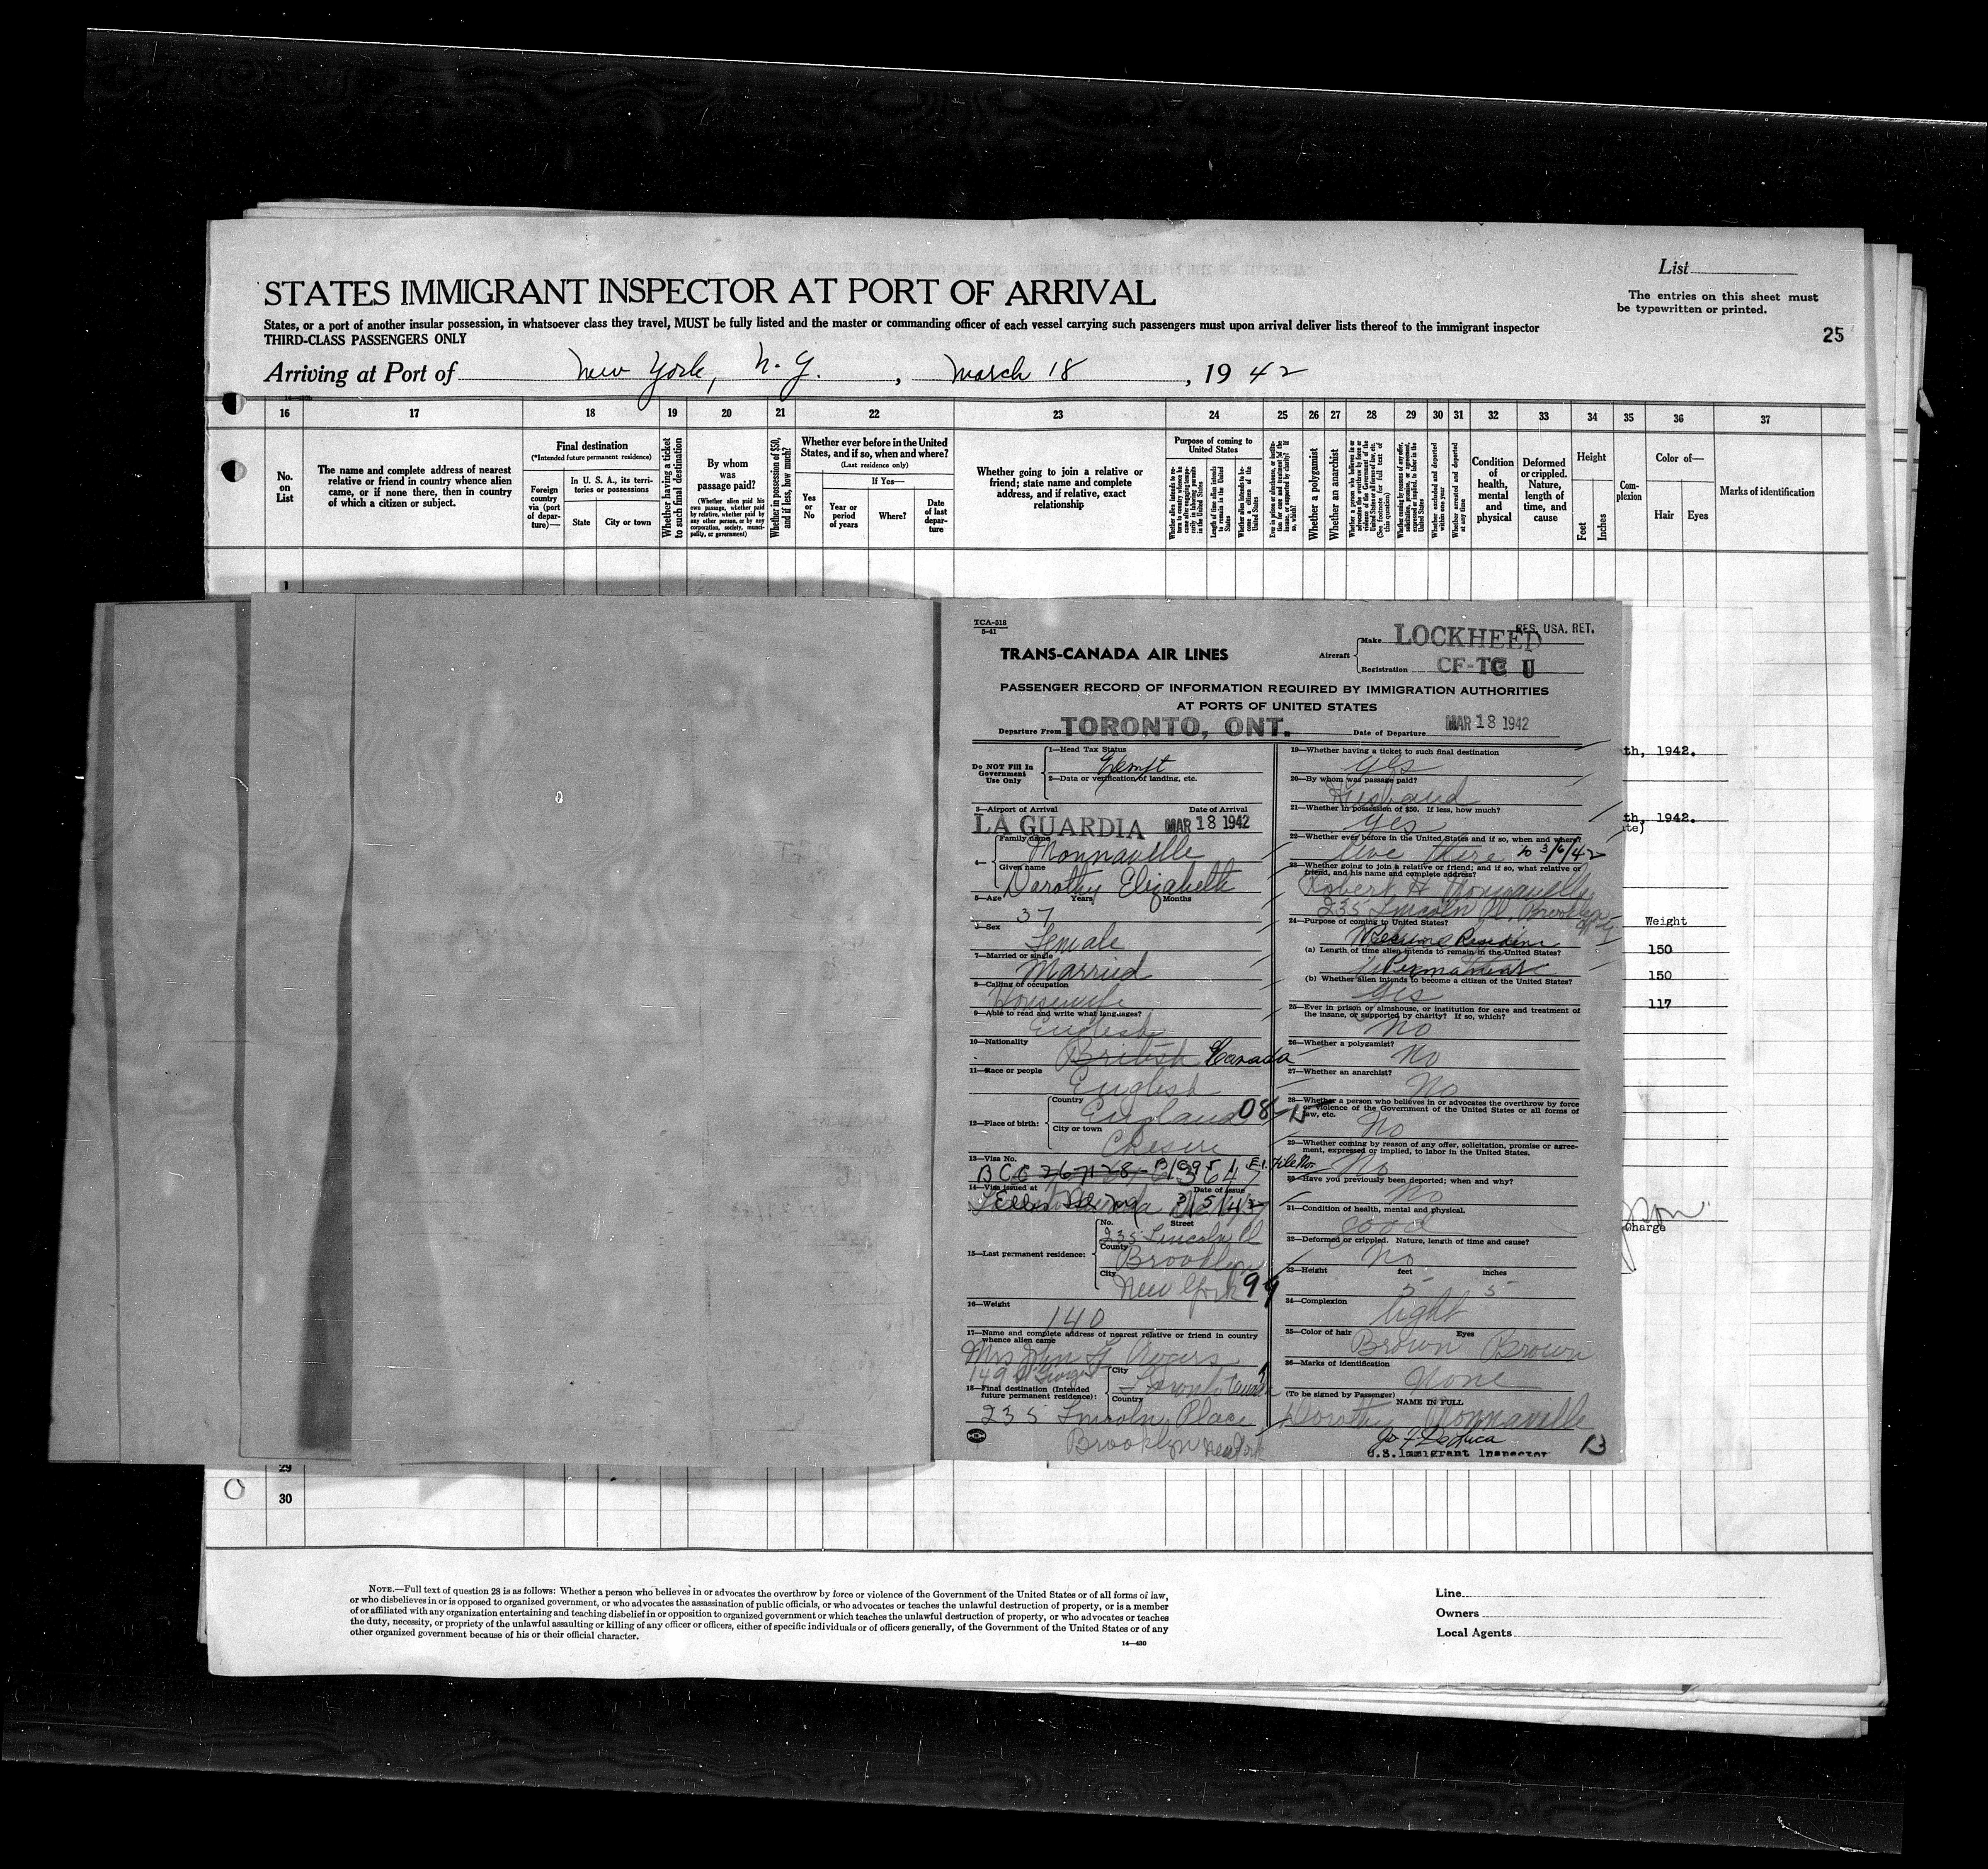 List
STATES IMMIGRANT INSPECTOR AT PORT OF ARRIVAL
The entries on this sheet must
be typewritten or printed.
States, or a port of another insular possession, in whatsoever class they travel, MUST be fully listed and the master or commanding officer of each vessel carrying such passengers must upon arrival deliver lists thereof to the immigrant inspector
THIRD-CLASS PASSENGERS ONLY
25
Arriving at Port of New York, N. Y. , March 18 , 19 42
16 17 18 19 20 21 22 23 24 25 26 27 28 29 30 31 32 33 34 35 36 37
No. on List
The name and complete address of nearest relative or friend in country whence alien came, or if none there, then in country of which a citizen or subject.
Final destination
(*Intended future permanent residence)
Foreign country via (port of departure)—
In U. S. A., its territories or possessions
State
City or town
Whether having a ticket to such final destination
By whom was passage paid?
(Whether alien paid his own passage, whether paid by relative, whether paid by any other person, or by any corporation, society, municipality, or government)
Whether in possession of $50, and if less, how much?
Whether ever before in the United States, and if so, when and where?
(Last residence only)
Yes or No
If Yes—
Year or period of years
Where?
Date of last departure
Whether going to join a relative or friend; state name and complete address, and if relative, exact relationship
Purpose of coming to United States
Length of time alien intends to remain in the United States
Whether alien intends to become a citizen of the United States
Whether a polygamist
Whether an anarchist
Whether excluded and deported within one year
Whether arrested and deported at any time
Condition of health, mental and physical
Deformed or crippled. Nature, length of time, and cause
Height
Feet
Inches
Complexion
Color of—
Hair
Eyes
Marks of identification
1
TCA-518
5-41
TRANS-CANADA AIR LINES
Aircraft
Make LOCKHEED
RES. USA. RET.
Registration CF-TC U
PASSENGER RECORD OF INFORMATION REQUIRED BY IMMIGRATION AUTHORITIES
AT PORTS OF UNITED STATES
Departure From TORONTO, ONT.
Date of Departure MAR 18 1942
Do NOT Fill In
Government
Use Only
1—Head Tax Status
Exempt
2—Data or verification of landing, etc.
3—Airport of Arrival
Date of Arrival
LA GUARDIA MAR 18 1942
4—
Family name
Monnaville
Given name
Dorothy Elizabeth
5—Age Years Months
37
6—Sex
Female
7—Married or single
Married
8—Calling or occupation
Housewife
9—Able to read and write what languages?
English
10—Nationality
British Canada
11—Race or people
English
12—Place of birth:
Country
England 08
City or town
Chesire
13—Visa No.
14—Visa issued at
Date of issue
15—Last permanent residence:
No. Street
235 Lincoln Pl
County
Brooklyn
City
New York 99
16—Weight
140
17—Name and complete address of nearest relative or friend in country
whence alien came
Mrs John
149 St George
City
Toronto
Country
18—Final destination (Intended
future permanent residence):
235 Lincoln Place
Brooklyn New York
19—Whether having a ticket to such final destination
yes
20—By whom was passage paid?
Husband
21—Whether in possession of $50. If less, how much?
yes
22—Whether ever before in the United States and if so, when and where?
Live there to 3/6/42
23—Whether going to join a relative or friend; and if so, what relative or
friend, and his name and complete address?
Robert H Monnaville
235 Lincoln Pl. Brooklyn N.Y.
24—Purpose of coming to United States?
Resume Residence
(a) Length of time alien intends to remain in the United States?
Permanent
(b) Whether alien intends to become a citizen of the United States?
Yes
25—Ever in prison or almshouse, or institution for care and treatment of
the insane, or supported by charity? If so, which?
No
26—Whether a polygamist?
No
27—Whether an anarchist?
No
28—Whether a person who believes in or advocates the overthrow by force
or violence of the Government of the United States or all forms of
law, etc.
No
29—Whether coming by reason of any offer, solicitation, promise or agree-
ment, expressed or implied, to labor in the United States.
No
30—Have you previously been deported; when and why?
No
31—Condition of health, mental and physical.
good
32—Deformed or crippled. Nature, length of time and cause?
No
33—Height feet inches
5 5
34—Complexion
light
35—Color of hair Eyes
Brown Brown
36—Marks of identification
None
(To be signed by Passenger) NAME IN FULL
Dorothy Monnaville
U.S. Immigrant Inspector
13
th, 1942.
th, 1942.
Weight
150
150
117
Charge
29
30
NOTE.—Full text of question 28 is as follows: Whether a person who believes in or advocates the overthrow by force or violence of the Government of the United States or of all forms of law,
or who disbelieves in or is opposed to organized government, or who advocates the assassination of public officials, or who advocates or teaches the unlawful destruction of property, or is a member
of or affiliated with any organization entertaining and teaching disbelief in or opposition to organized government or which teaches the unlawful destruction of property, or who advocates or teaches
the duty, necessity, or propriety of the unlawful assaulting or killing of any officer or officers, either of specific individuals or of officers generally, of the Government of the United States or of any
other organized government because of his or their official character.
14—430
Line
Owners
Local Agents